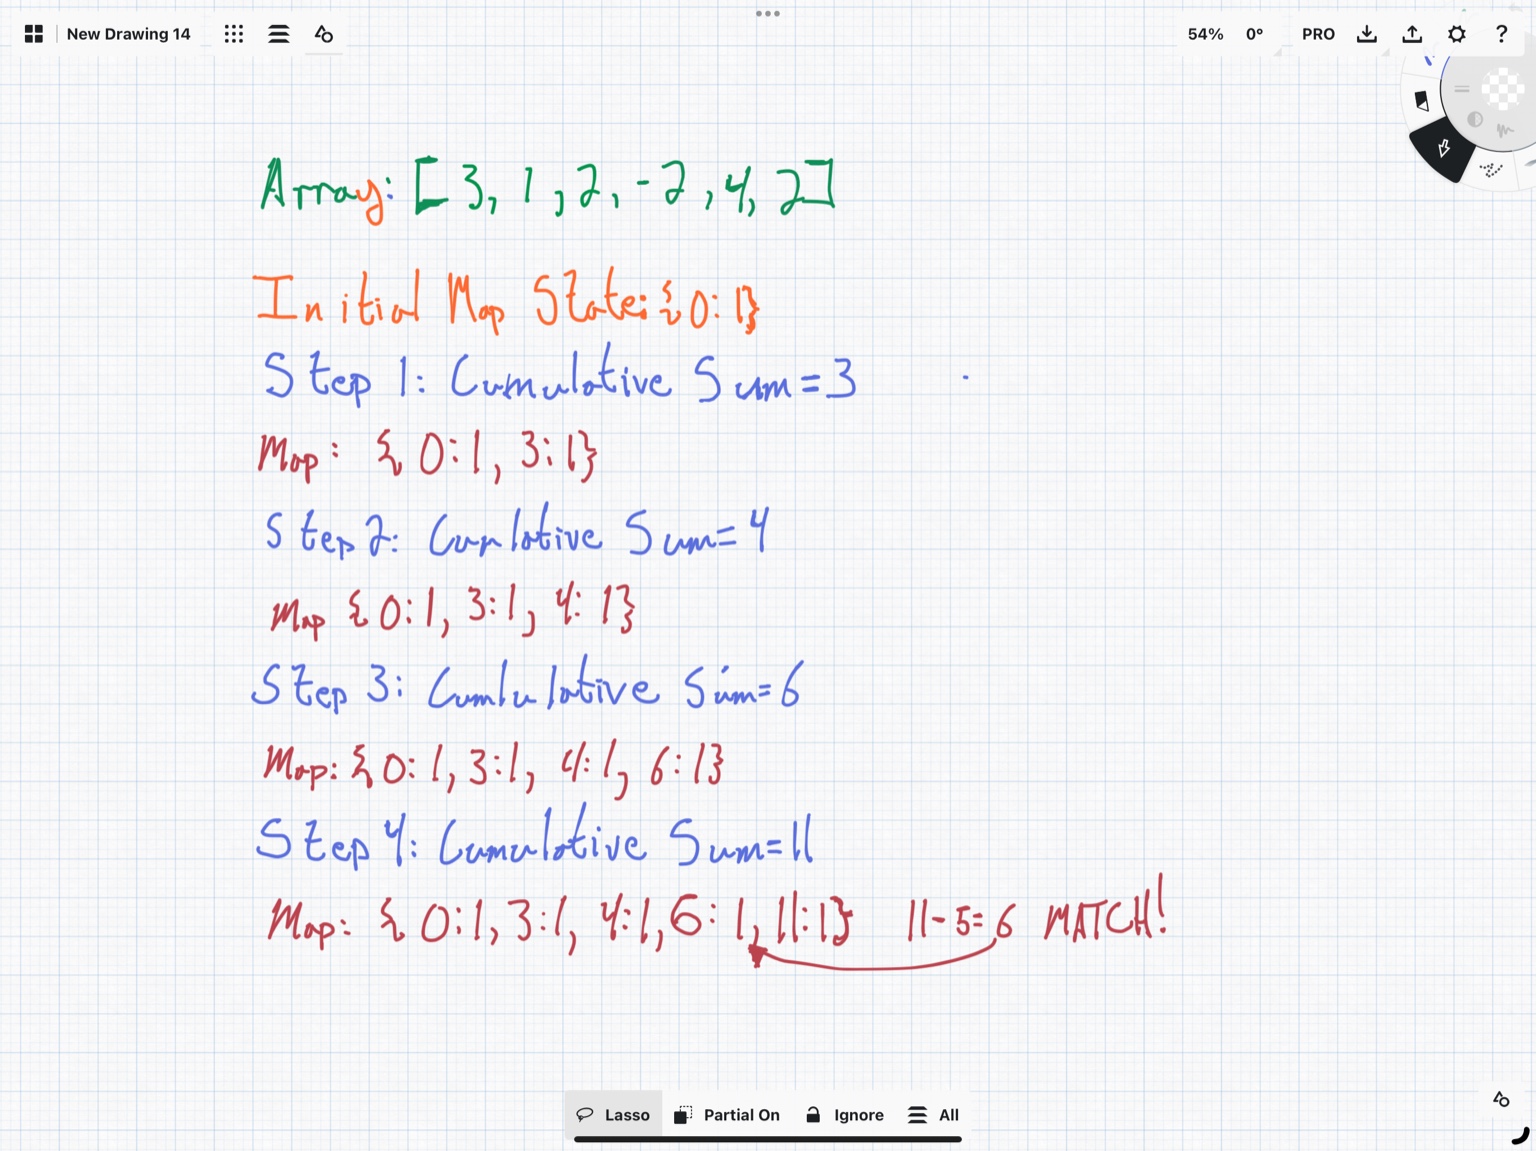 New Drawing 14
54% 0° PRO ?
Array: [3, 1, 2, -2, 4, 2]
Initial Map State: {0: 1}
Step 1: Cumulative Sum=3
Map: {0:1, 3:1}
Step 2: Cumlative Sum=4
Map {0:1, 3:1, 4: 1}
Step 3: Cumlulative Sum=6
Map: {0: 1, 3:1, 4:1, 6:1}
Step 4: Cumulative Sum=11
Map: {0:1, 3:1, 4:1, 6: 1, 11:1} 11-5=6 MATCH!
Lasso Partial On Ignore All